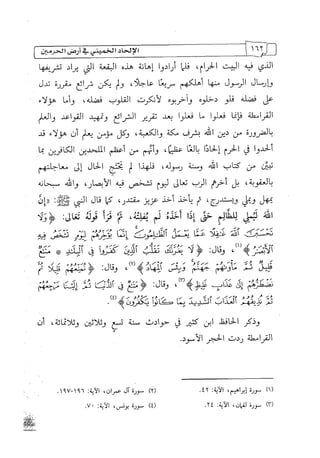 ١٦٢ الإلحاد الخميني في أرض الحرمين
الذي فيه البيت الحرام، فلما أرادوا إهانة هذه البقعة التي يراد تشريفها
وإرسال الرسول منها أهلكهم سريعًا عاجلًا، ولم يكن شرائع مقررة تدل
على فضله فلو دخلوه وأخربوه لأنكرت القلوب فضله، وأما هؤلاء
القرامطة فإنما فعلوا ما فعلوا بعد تقرير الشرائع وتمهيد القواعد والعلم
بالضرورة من دين الله بشرف مكة والكعبة، وكل مؤمن يعلم أن هؤلاء قد
ألحدوا في الحرم إلحادًا بالغًا عظيمًا، وأنهم من أعظم الملحدين الكافرين بما
تبين من كتاب الله وسنة رسوله، فلهذا لم يحتج الحال إلى معاجلتهم
بالعقوبة، بل أخرهم الرب تعالى ليوم تشخص فيه الأبصار، والله سبحانه
يمهل ويملي ويستدرج، ثم يأخذ أخذ عزيز مقتدر، كما قال النبي ﷺ: «إن
الله ليملي للظالم حتى إذا أخذه لم يفلته»، ثم قرأ قوله تعالى: ﴿وَلَا
تَحْسَبَنَّ اللَّهَ غَافِلًا عَمَّا يَعْمَلُ الظَّالِمُونَ إِنَّمَا يُؤَخِّرُهُمْ لِيَوْمٍ تَشْخَصُ فِيهِ
الْأَبْصَارُ﴾(١)، وقال: ﴿لَا يَغُرَّنَّكَ تَقَلُّبُ الَّذِينَ كَفَرُوا فِي الْبِلَادِ ۝ مَتَاعٌ
قَلِيلٌ ثُمَّ مَأْوَاهُمْ جَهَنَّمُ وَبِئْسَ الْمِهَادُ﴾(٢)، وقال: ﴿نُمَتِّعُهُمْ قَلِيلًا ثُمَّ
نَضْطَرُّهُمْ إِلَى عَذَابٍ غَلِيظٍ﴾(٣)، وقال: ﴿مَتَاعٌ فِي الدُّنْيَا ثُمَّ إِلَيْنَا مَرْجِعُهُمْ
ثُمَّ نُذِيقُهُمُ الْعَذَابَ الشَّدِيدَ بِمَا كَانُوا يَكْفُرُونَ﴾(٤).
وذكر الحافظ ابن كثير في حوادث سنة تسع وثلاثين وثلاثمائة، أن
القرامطة ردت الحجر الأسود.
(١) سورة إبراهيم، الآية: ٤٢. (٢) سورة آل عمران، الآية: ١٩٦-١٩٧.
(٣) سورة لقمان، الآية: ٢٤. (٤) سورة يونس، الآية: ٧٠.